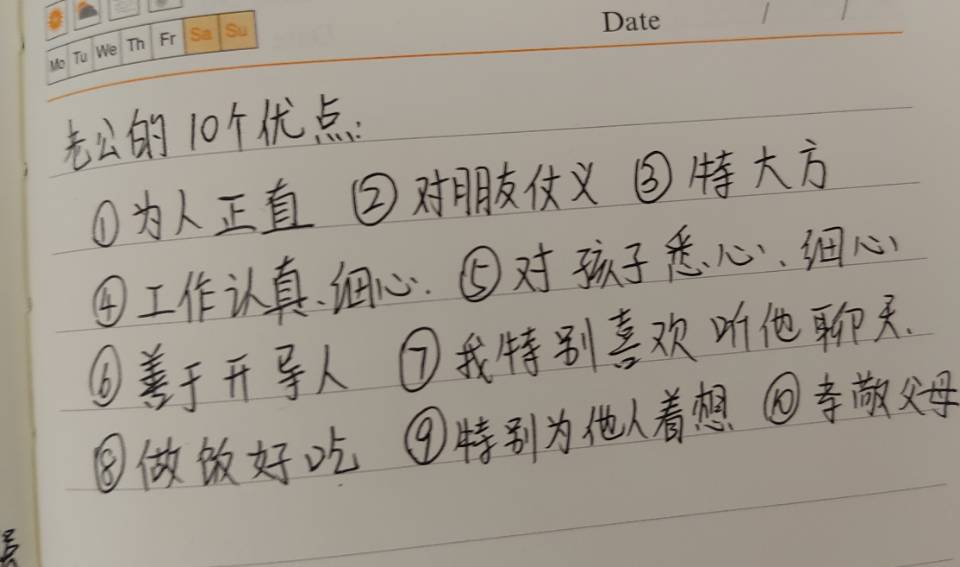 Mo Tu We Th Fr Sa Su
Date / /
老公的10个优点:
①为人正直 ②对朋友仗义 ③特大方
④工作认真、细心. ⑤对孩子悉心、细心
⑥善于开导人 ⑦我特别喜欢听他聊天.
⑧做饭好吃 ⑨特别为他人着想 ⑩孝敬父母